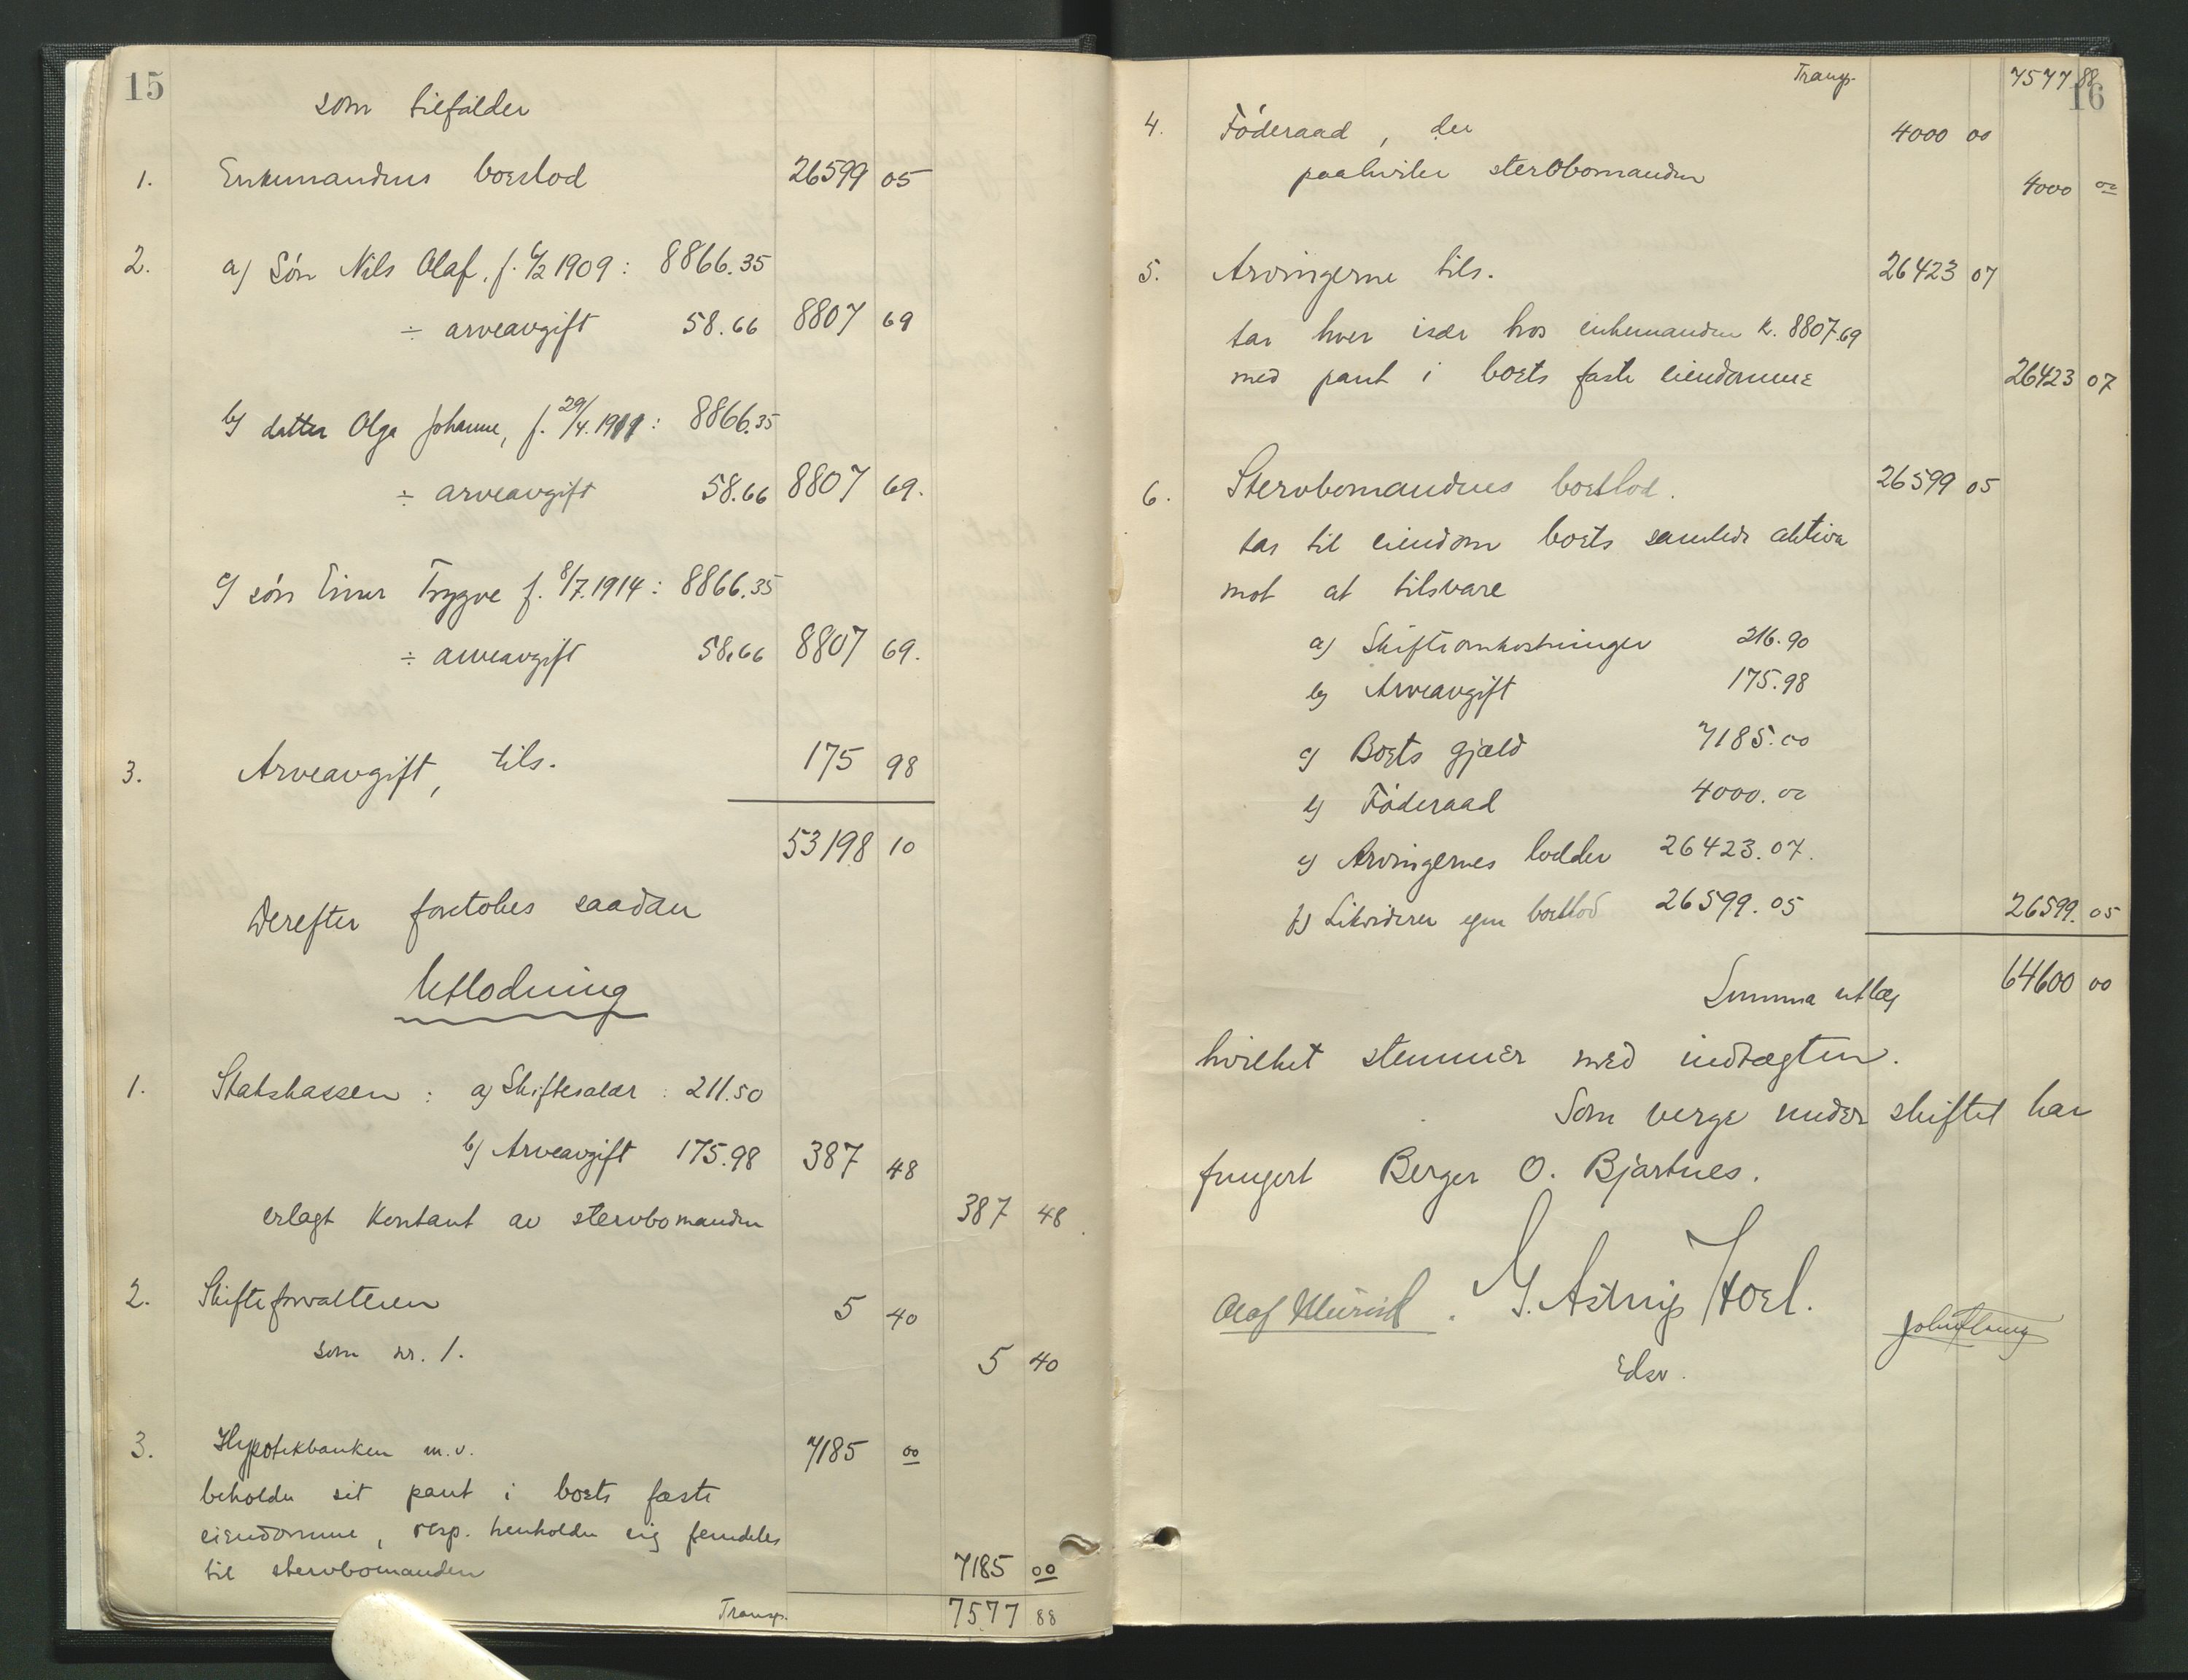 15
som tilfalder
1. Enkemandens boeslod 26599 05
2. a) Søn Nils Olaf, f. 6/2 1909: 8866.35
÷ arveavgift 58.66 8807 69
b) datter Olga Johanne, f. 29/4.1911: 8866.35
÷ arveavgift 58.66 8807 69.
c) søn Einar Trygve f. 8/7.1914: 8866.35
÷ arveavgift 58.66 8807 69.
3. Arveavgift, tils. 175 98
53198 10
Derefter foretokes saadan
Utlodning
1. Statskassen: a) Skiftesalær: 211.50
b) Arveavgift 175.98 387 48
erlagt kontant av stervbomanden 387 48.
2. Skifteforvalteren 5 40
som nr. 1. 5 40
3. Hypotekbanken m.v. 7185 00
beholder sit pant i boets faste
eiendomme, resp. henholder sig fremdeles
til stervbomanden 7185 00
Transp. 7577 88
Transp. 7577 88
16
4. Føderaad, der 4000 00
paahviler stervbomanden 4000 00
5. Arvingerne tils. 26423 07
tar hver især hos enkemanden k. 8807.69
med pant i boets faste eiendomme 26423 07
6. Stervbomandens boeslod. 26599 05
tar til eiendom boets samlede aktiva
mot at tilsvare
a) Skifteomkostninger 216.90
b) Arveavgift 175.98
c) Boets gjæld 7185.00
d) Føderaad 4000.00
e) Arvingernes lodder 26423.07.
f) Likviderer egen boeslod 26599.05 26599.05
Summa utlæg 64600 00
hvilket stemmer med indtægten.
Som verge under skiftet har
fungert Berger O. Bjartnes.
Olaf . G. Astrup Hoel.
Edsv.